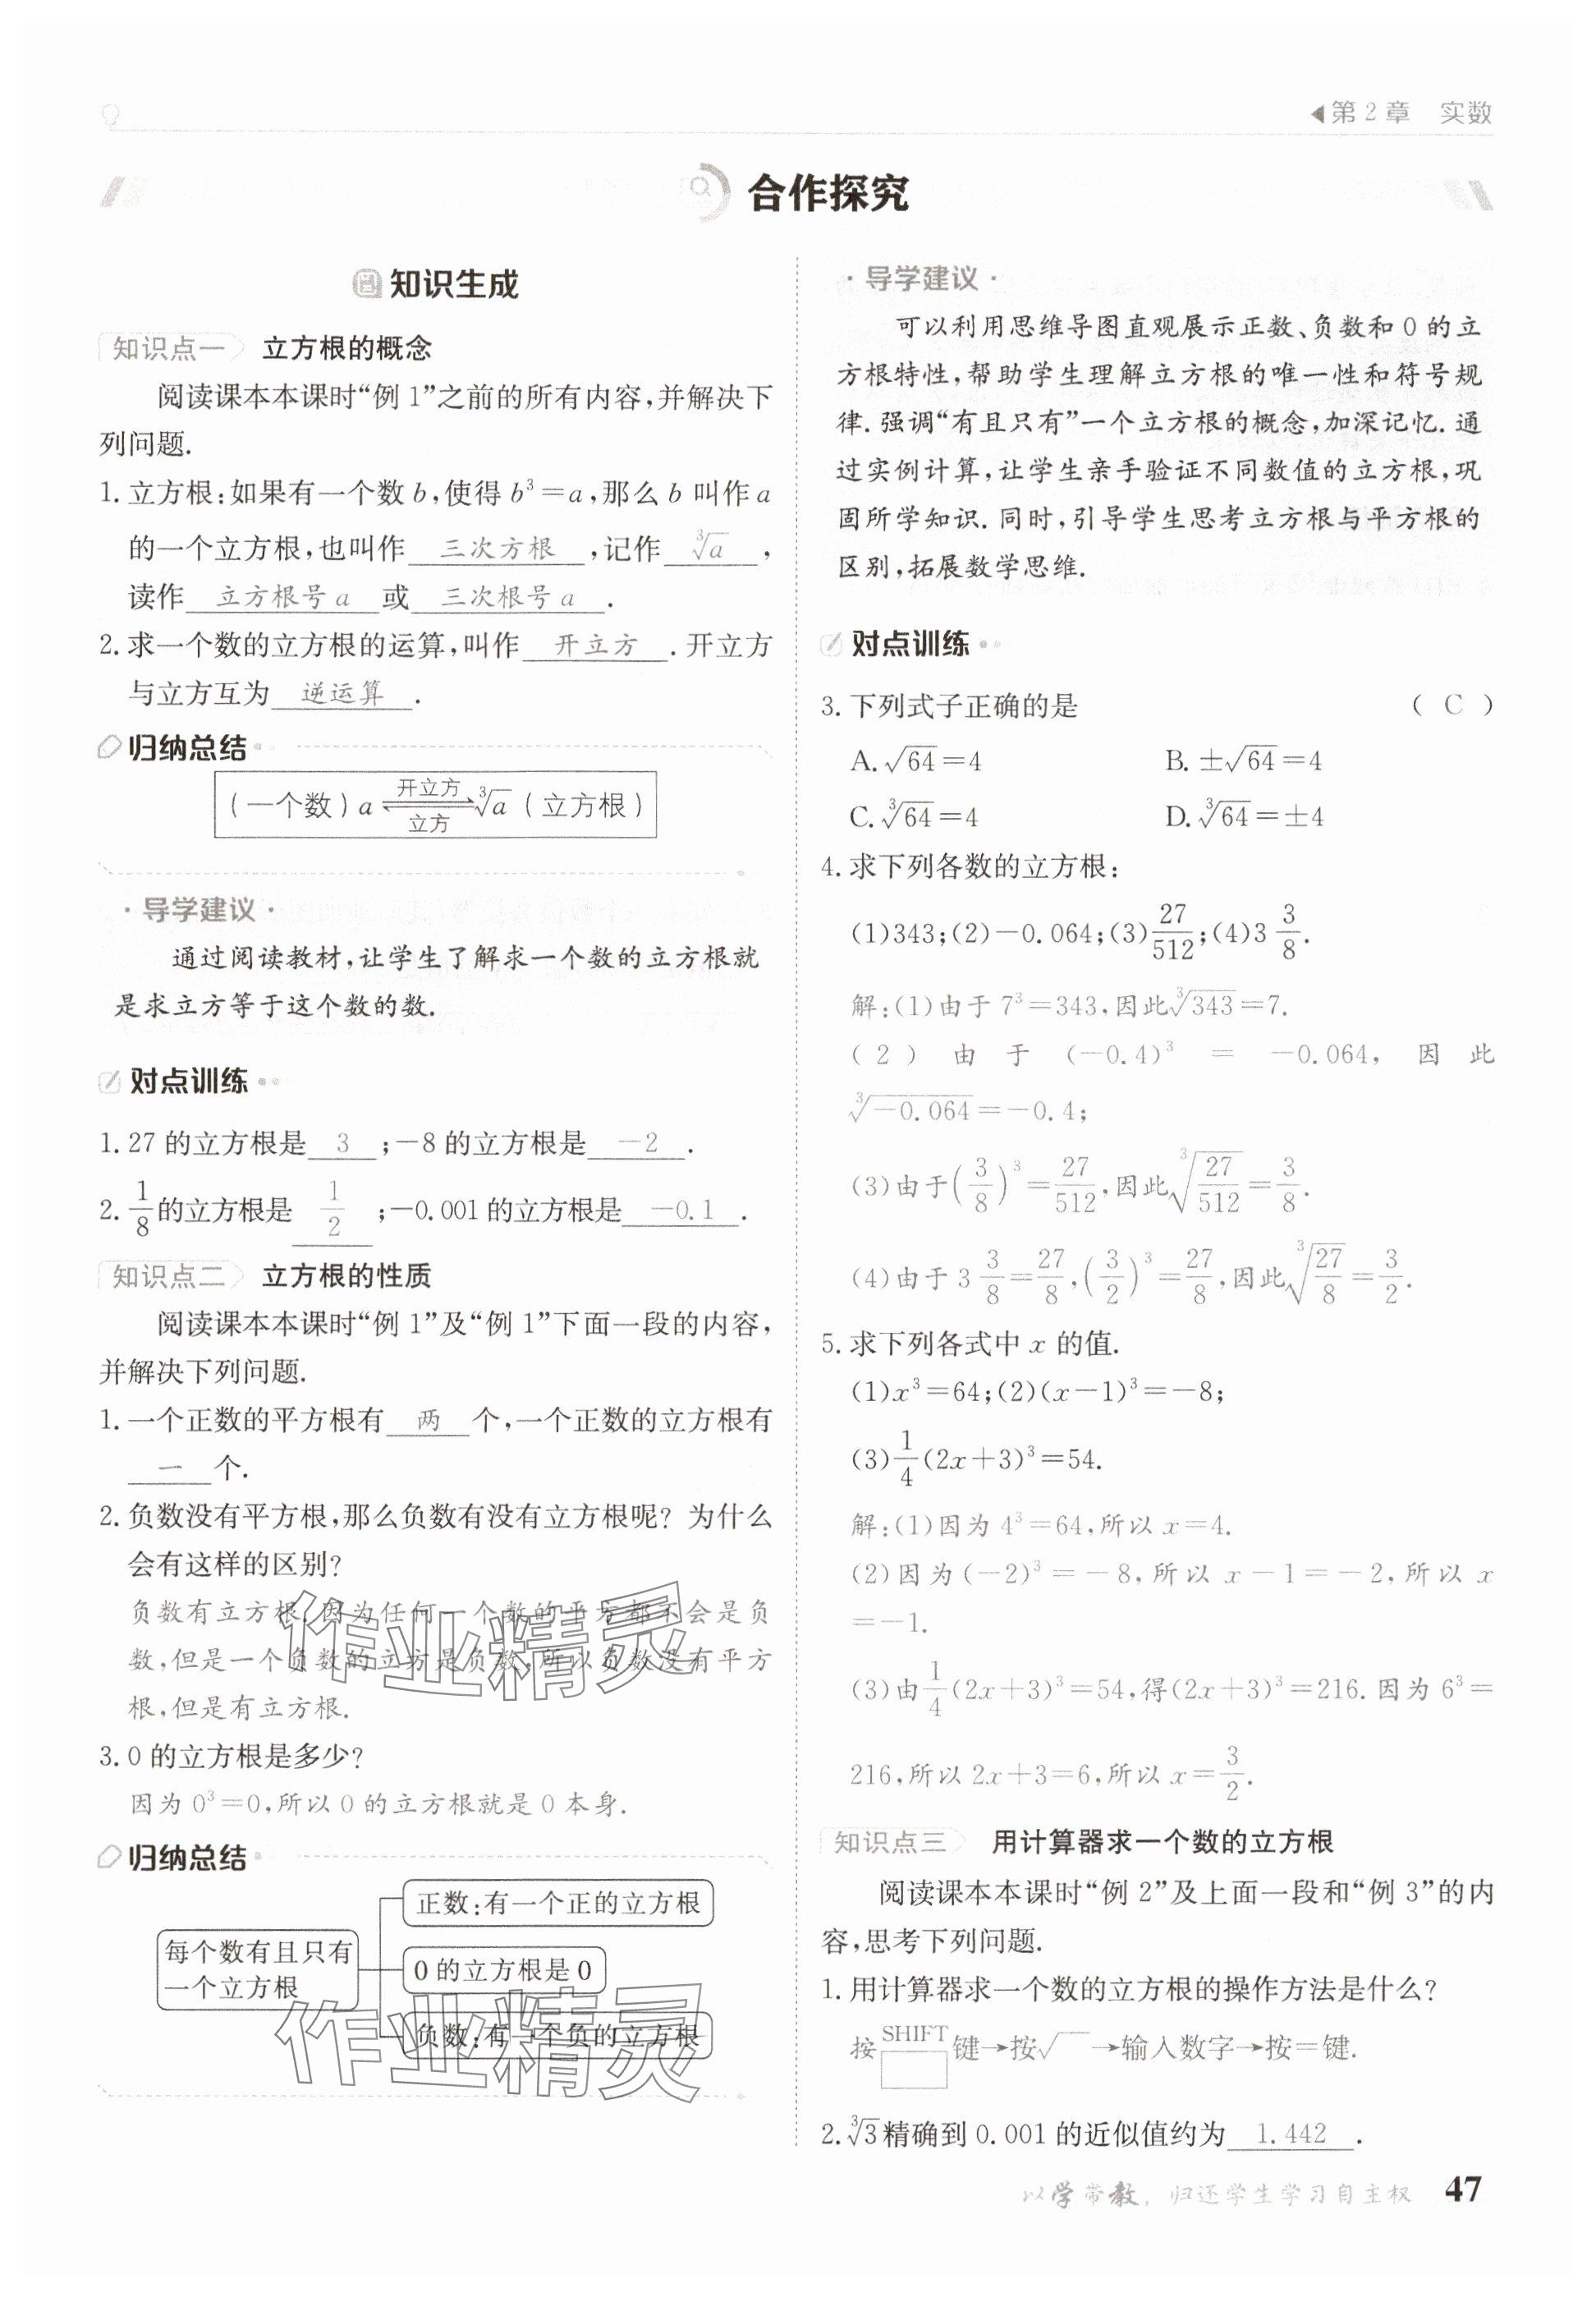 第2章 实数
合作探究
知识生成
知识点一 立方根的概念
阅读课本本课时“例1”之前的所有内容,并解决下
列问题.
1. 立方根:如果有一个数b,使得b³=a,那么b叫作a
的一个立方根,也叫作 三次方根 ,记作 ∛a ,
读作 立方根号a 或 三次根号a .
2. 求一个数的立方根的运算,叫作 开立方 .开立方
与立方互为 逆运算 .
归纳总结
(一个数)a ⇌ ∛a(立方根)
开立方
立方
·导学建议·
通过阅读教材,让学生了解求一个数的立方根就
是求立方等于这个数的数.
对点训练
1. 27的立方根是 3 ;-8的立方根是 -2 .
2. 1/8的立方根是 1/2 ;-0.001的立方根是 -0.1 .
知识点二 立方根的性质
阅读课本本课时“例1”及“例1”下面一段的内容,
并解决下列问题.
1. 一个正数的平方根有 两 个,一个正数的立方根有
一 个.
2. 负数没有平方根,那么负数有没有立方根呢? 为什么
会有这样的区别?
负数有立方根.因为任何一个数的平方都不会是负
数,但是一个负数的立方是负数,所以负数没有平方
根,但是有立方根.
3. 0的立方根是多少?
因为0³=0,所以0的立方根就是0本身.
归纳总结
每个数有且只有
一个立方根
正数:有一个正的立方根
0的立方根是0
负数:有一个负的立方根
·导学建议·
可以利用思维导图直观展示正数、负数和0的立
方根特性,帮助学生理解立方根的唯一性和符号规
律.强调“有且只有”一个立方根的概念,加深记忆.通
过实例计算,让学生亲手验证不同数值的立方根,巩
固所学知识.同时,引导学生思考立方根与平方根的
区别,拓展数学思维.
对点训练
3. 下列式子正确的是 ( C )
A. √64=4 B. ±√64=4
C. ∛64=4 D. ∛64=±4
4. 求下列各数的立方根:
(1)343;(2)-0.064;(3)27/512;(4)3 3/8.
解:(1)由于7³=343,因此∛343=7.
(2)由于(-0.4)³=-0.064,因此
∛-0.064=-0.4;
(3)由于(3/8)³=27/512,因此∛(27/512)=3/8.
(4)由于3 3/8=27/8,(3/2)³=27/8,因此∛(27/8)=3/2.
5. 求下列各式中x的值.
(1)x³=64;(2)(x-1)³=-8;
(3)1/4(2x+3)³=54.
解:(1)因为4³=64,所以x=4.
(2)因为(-2)³=-8,所以x-1=-2,所以x
=-1.
(3)由1/4(2x+3)³=54,得(2x+3)³=216.因为6³=
216,所以2x+3=6,所以x=3/2.
知识点三 用计算器求一个数的立方根
阅读课本本课时“例2”及上面一段和“例3”的内
容,思考下列问题.
1. 用计算器求一个数的立方根的操作方法是什么?
按SHIFT键→按√ →输入数字→按=键.
2. ∛3精确到0.001的近似值约为 1.442 .
以学带教,归还学生学习自主权 47
作业精灵
作业精灵